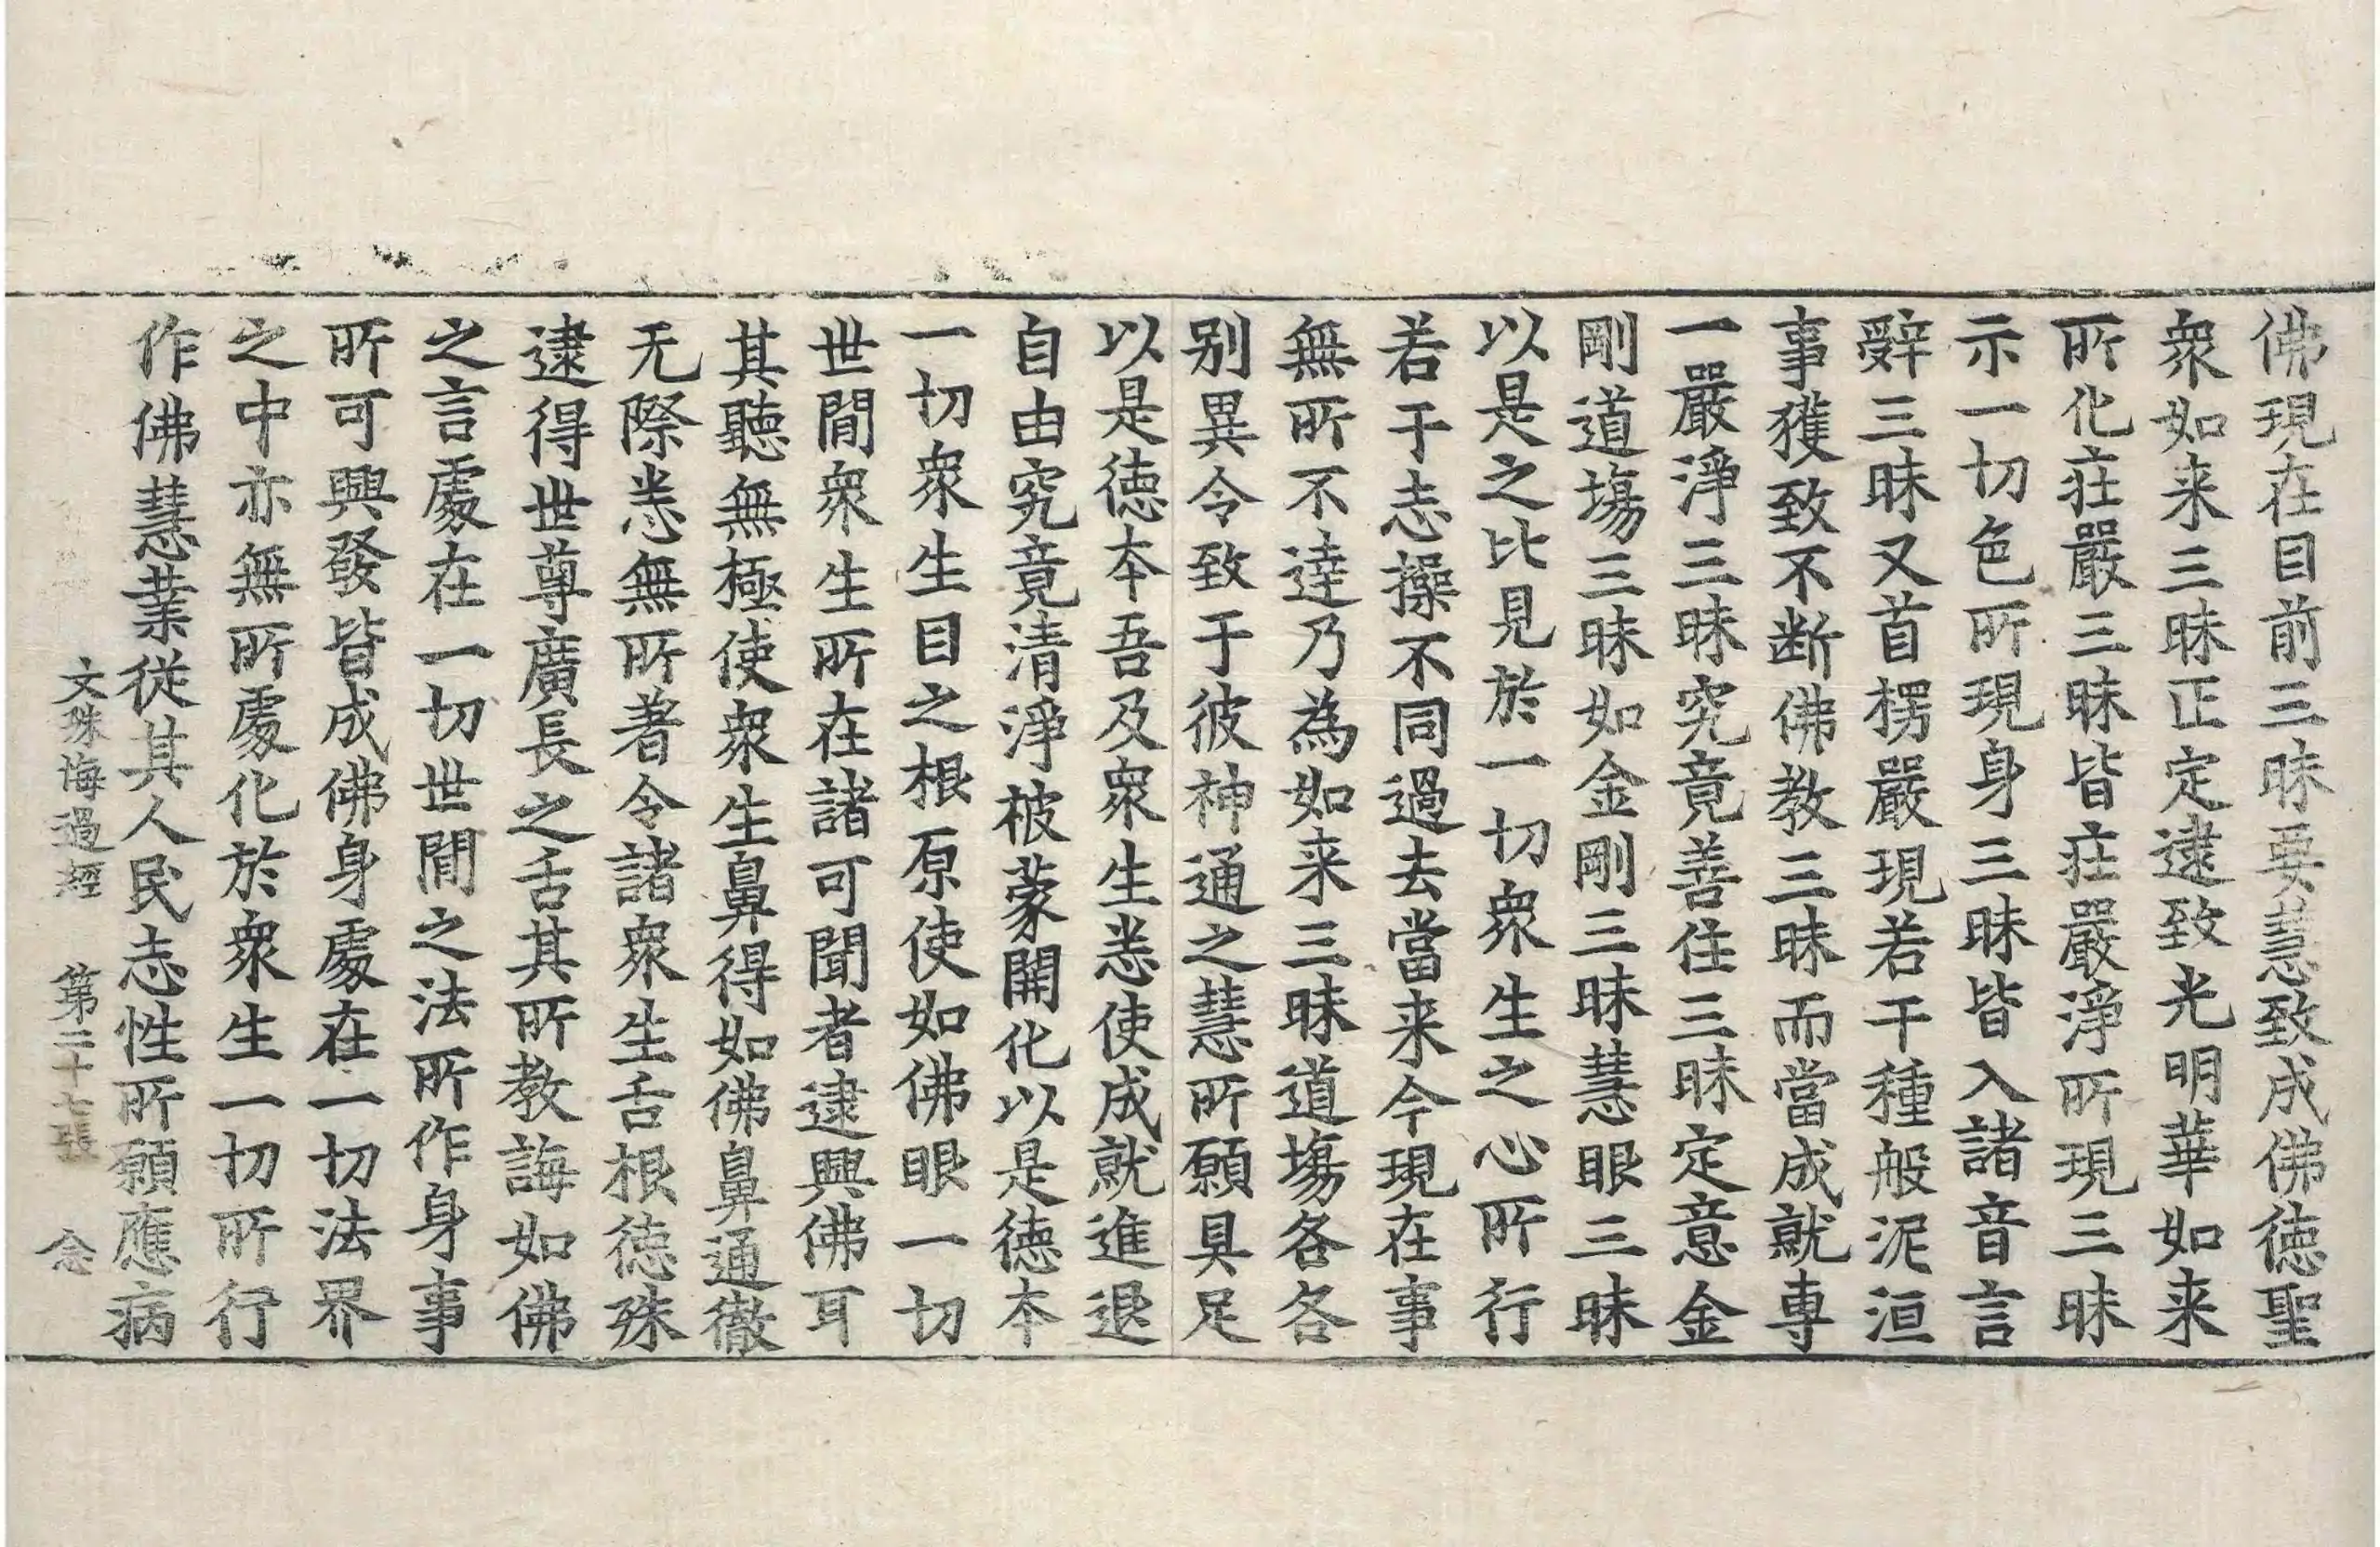 佛現在目前三昧要慧致成佛德聖
衆如来三昧正定逮致光明華如来
所化莊嚴三昧皆莊嚴淨所現三昧
示一切色所現身三昧皆入諸音言
辤三昧又首楞嚴現若干種般泥洹
事獲致不断佛教三昧而當成就專
一嚴淨三昧究竟善住三昧定意金
剛道場三昧如金剛三昧慧眼三昧
以是之比見於一切衆生之心所行
若干志操不同過去當来今現在事
無所不達乃為如来三昧道場各各
別異令致于彼神通之慧所願具足
以是德夲吾及衆生悉使成就進退
自由究竟清淨被蒙開化以是德夲
一切衆生目之根原使如佛眼一切
世閒衆生所在諸可聞者逮興佛耳
其聽無極使衆生鼻得如佛鼻通徹
无際悉無所著令諸衆生舌根德殊
逮得世尊廣長之舌其所教誨如佛
之言處在一切世閒之法所作身事
所可興發皆成佛身處在一切法界
之中亦無所處化於衆生一切所行
作佛慧業從其人民志性所願應病
文殊悔過經 第二十七張 念